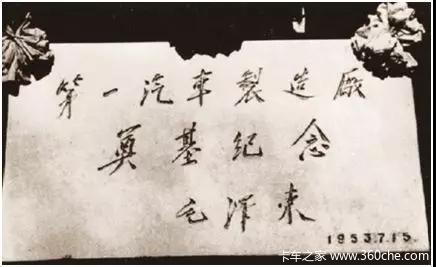 第一汽車製造廠
奠基紀念
毛泽东
1953.7.15.
卡车之家 www.360che.com